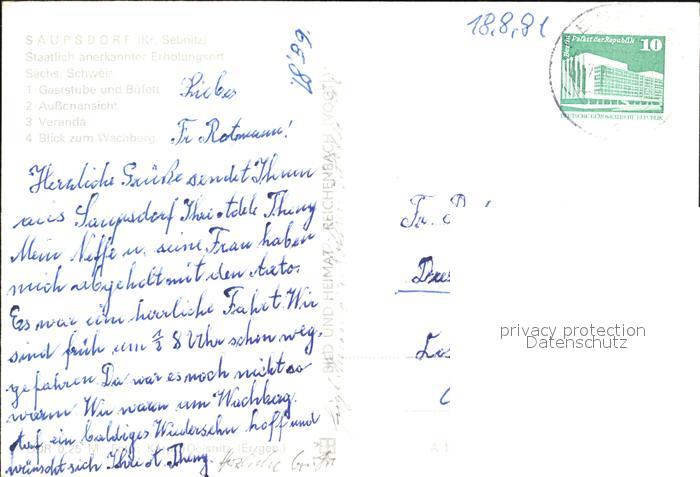 18.8.81
SAUPSDORF (Kr. Sebnitz)
Staatlich anerkannter Erholungsort
Sächs. Schweiz
1 Gaststube und Büfett
2 Außenansicht
3 Veranda
4 Blick zum Wachberg
Liebes
Fr Rotmann!
Herzliche Grüße sendet Ihnen
aus Saupsdorf Ihre Adele Thieny
Mein Neffe u. seine Frau haben
mich abgeholt mit den Auto.
Es war eine herrliche Fahrt. Wir
sind früh um ½ 8 Uhr schon weg-
gefahren. Da war es noch nicht so
warm. Wir waren am Wachberg.
Auf ein baldiges Wiedersehn hoff und
wünscht sich Ihre A Thieny.
BILD UND HEIMAT REICHENBACH
Palast der Republik
10
DEUTSCHE DEMOKRATISCHE REPUBLIK
Fr.
privacy protection
Datenschutz
A 1